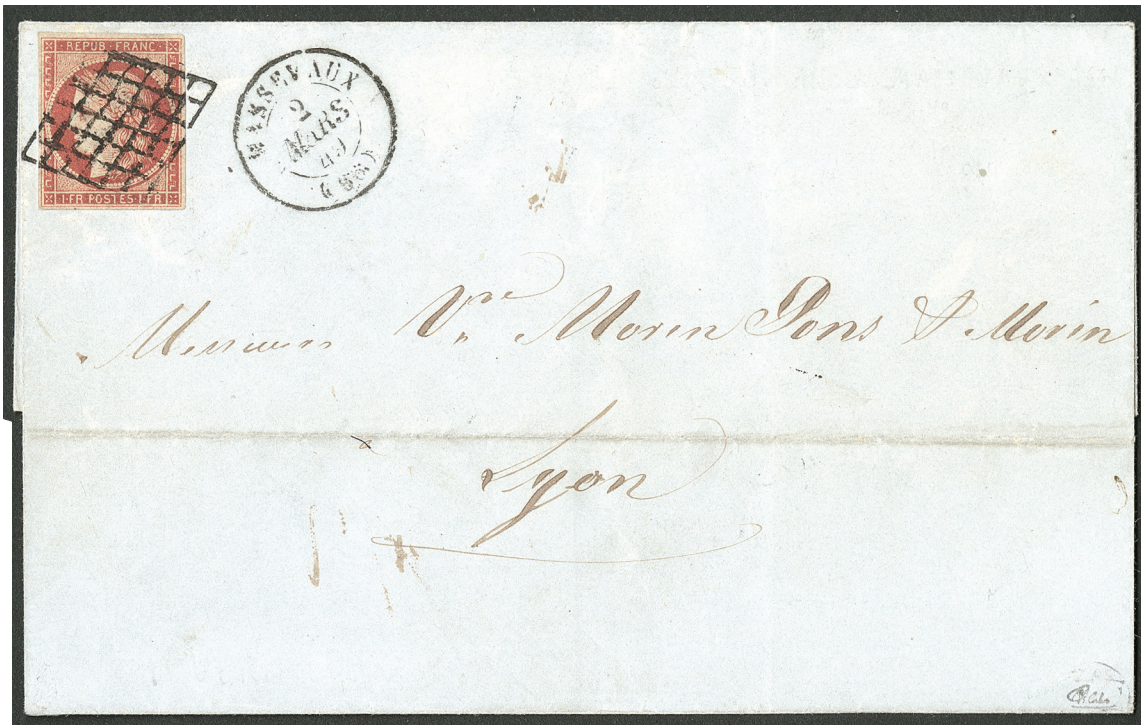 REPUB FRANC
1 FR POSTES 1 FR
MASSEVAUX
2
MARS
49
(66)
Messieurs Vve Morin Pons & Morin
Lyon